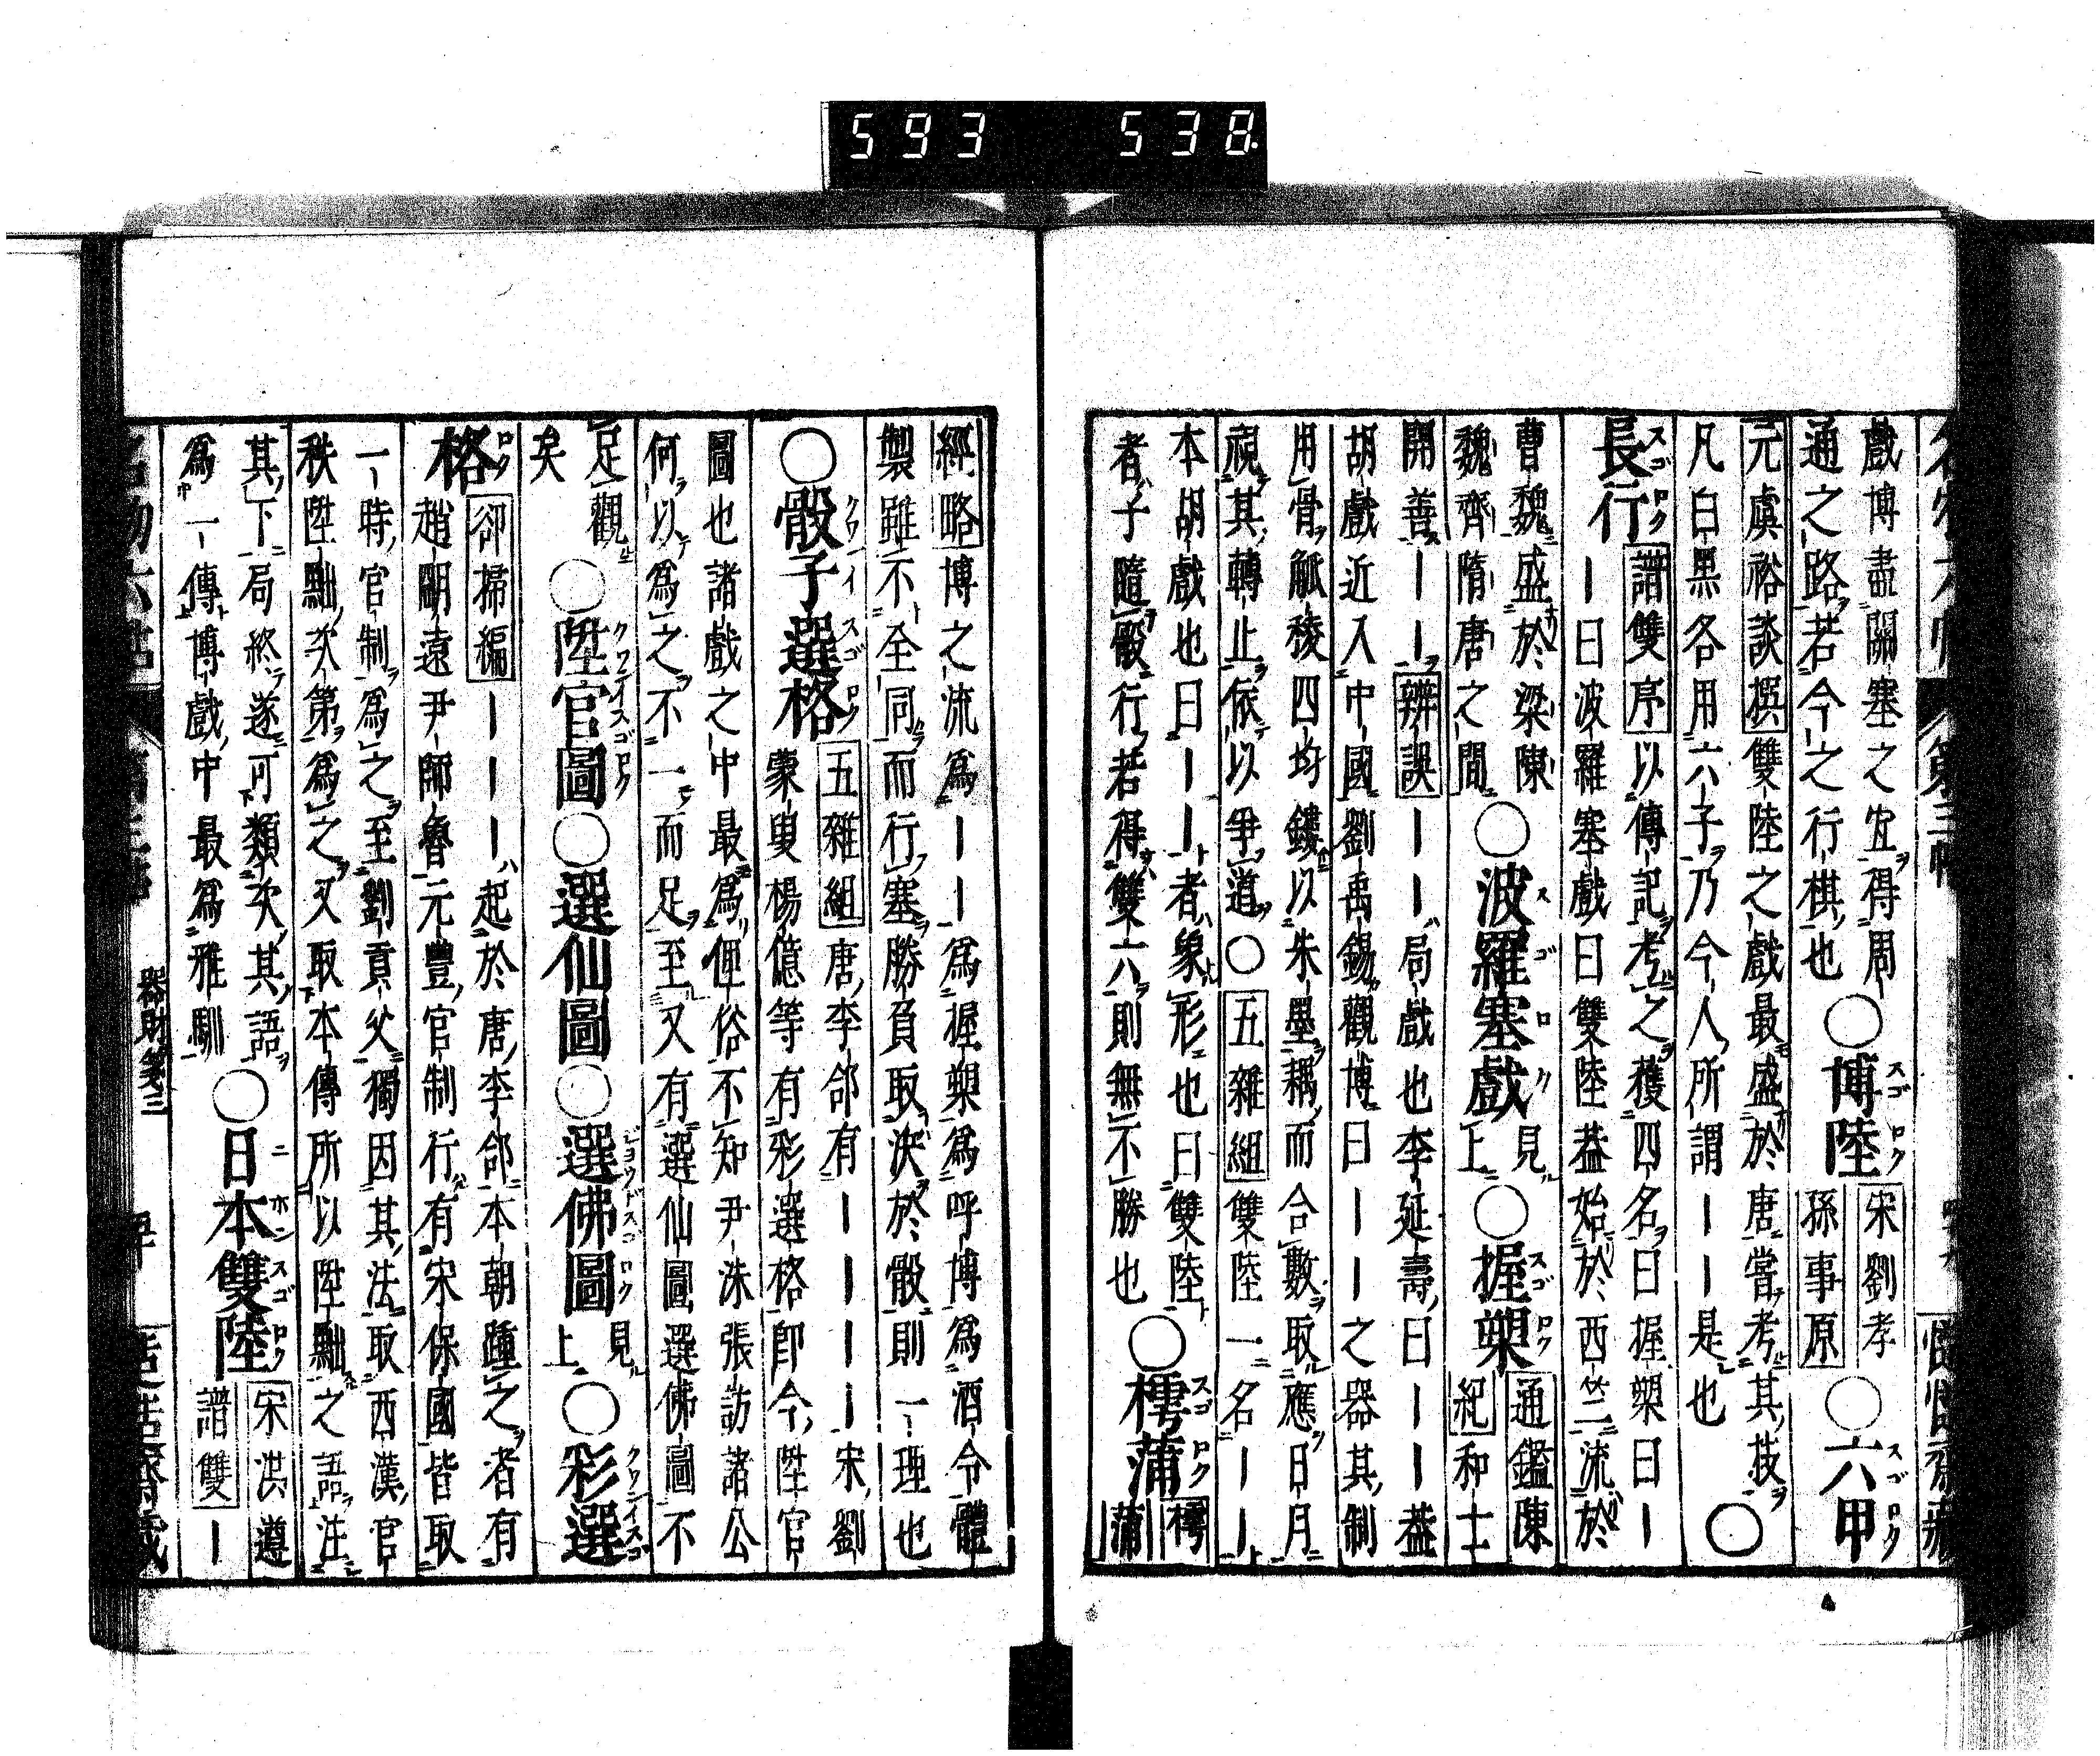 593 538
戲博盡關塞之宜得周
通之路若今之行棋也
○博陸
宋劉孝
孫事原
○六甲
元虞裕談撰雙陸之戲最盛於唐嘗考其技
凡白黑各用六子乃今人所謂｜｜是也
○
長行
譜雙序以傳記考之獲四名曰握槊曰｜
｜曰波羅塞戲曰雙陸葢始於西竺流於
曹魏盛於梁陳
魏齊隋唐之間
○波羅塞戲
見
上
○握槊
通鑑陳
紀和士
開善｜｜辨誤｜｜局戲也李延壽曰｜｜葢
胡戲近入中國劉禹錫觀博曰｜｜之器其制
用骨觚稜四均鏤以朱墨耦而合數取應日月
視其轉止依以爭道○五雜組雙陸一名｜｜
本胡戲也曰｜｜者象形也曰雙陸
者子隨骰行若得雙六則無不勝也
○樗蒲
樗
蒲
經略博之流爲｜｜爲握槊爲呼博爲酒令體
製雖不全同而行塞勝負取決於骰則一理也
○骰子選格
五雜組唐李郃有｜｜｜｜宋劉
蒙叟楊億等有彩選格卽今陞官
圖也諸戲之中最爲俚俗不知尹洙張訪諸公
何以爲之不一而足至又有選仙圖選佛圖不
足觀
矣
○陞官圖○選仙圖○選佛圖
見
上
○彩選
格
卻掃編｜｜｜起於唐李郃本朝踵之者有
趙明遠尹師魯元豐官制行有宋保國皆取
一時官制爲之至劉貢父獨因其法取西漢官
秩陞黜次第爲之又取本傳所以陞黜之語注
其下局終遂可類次其語
爲一傳博戲中最爲雅馴
○日本雙陸
宋洪遵
譜雙｜
器財箋三